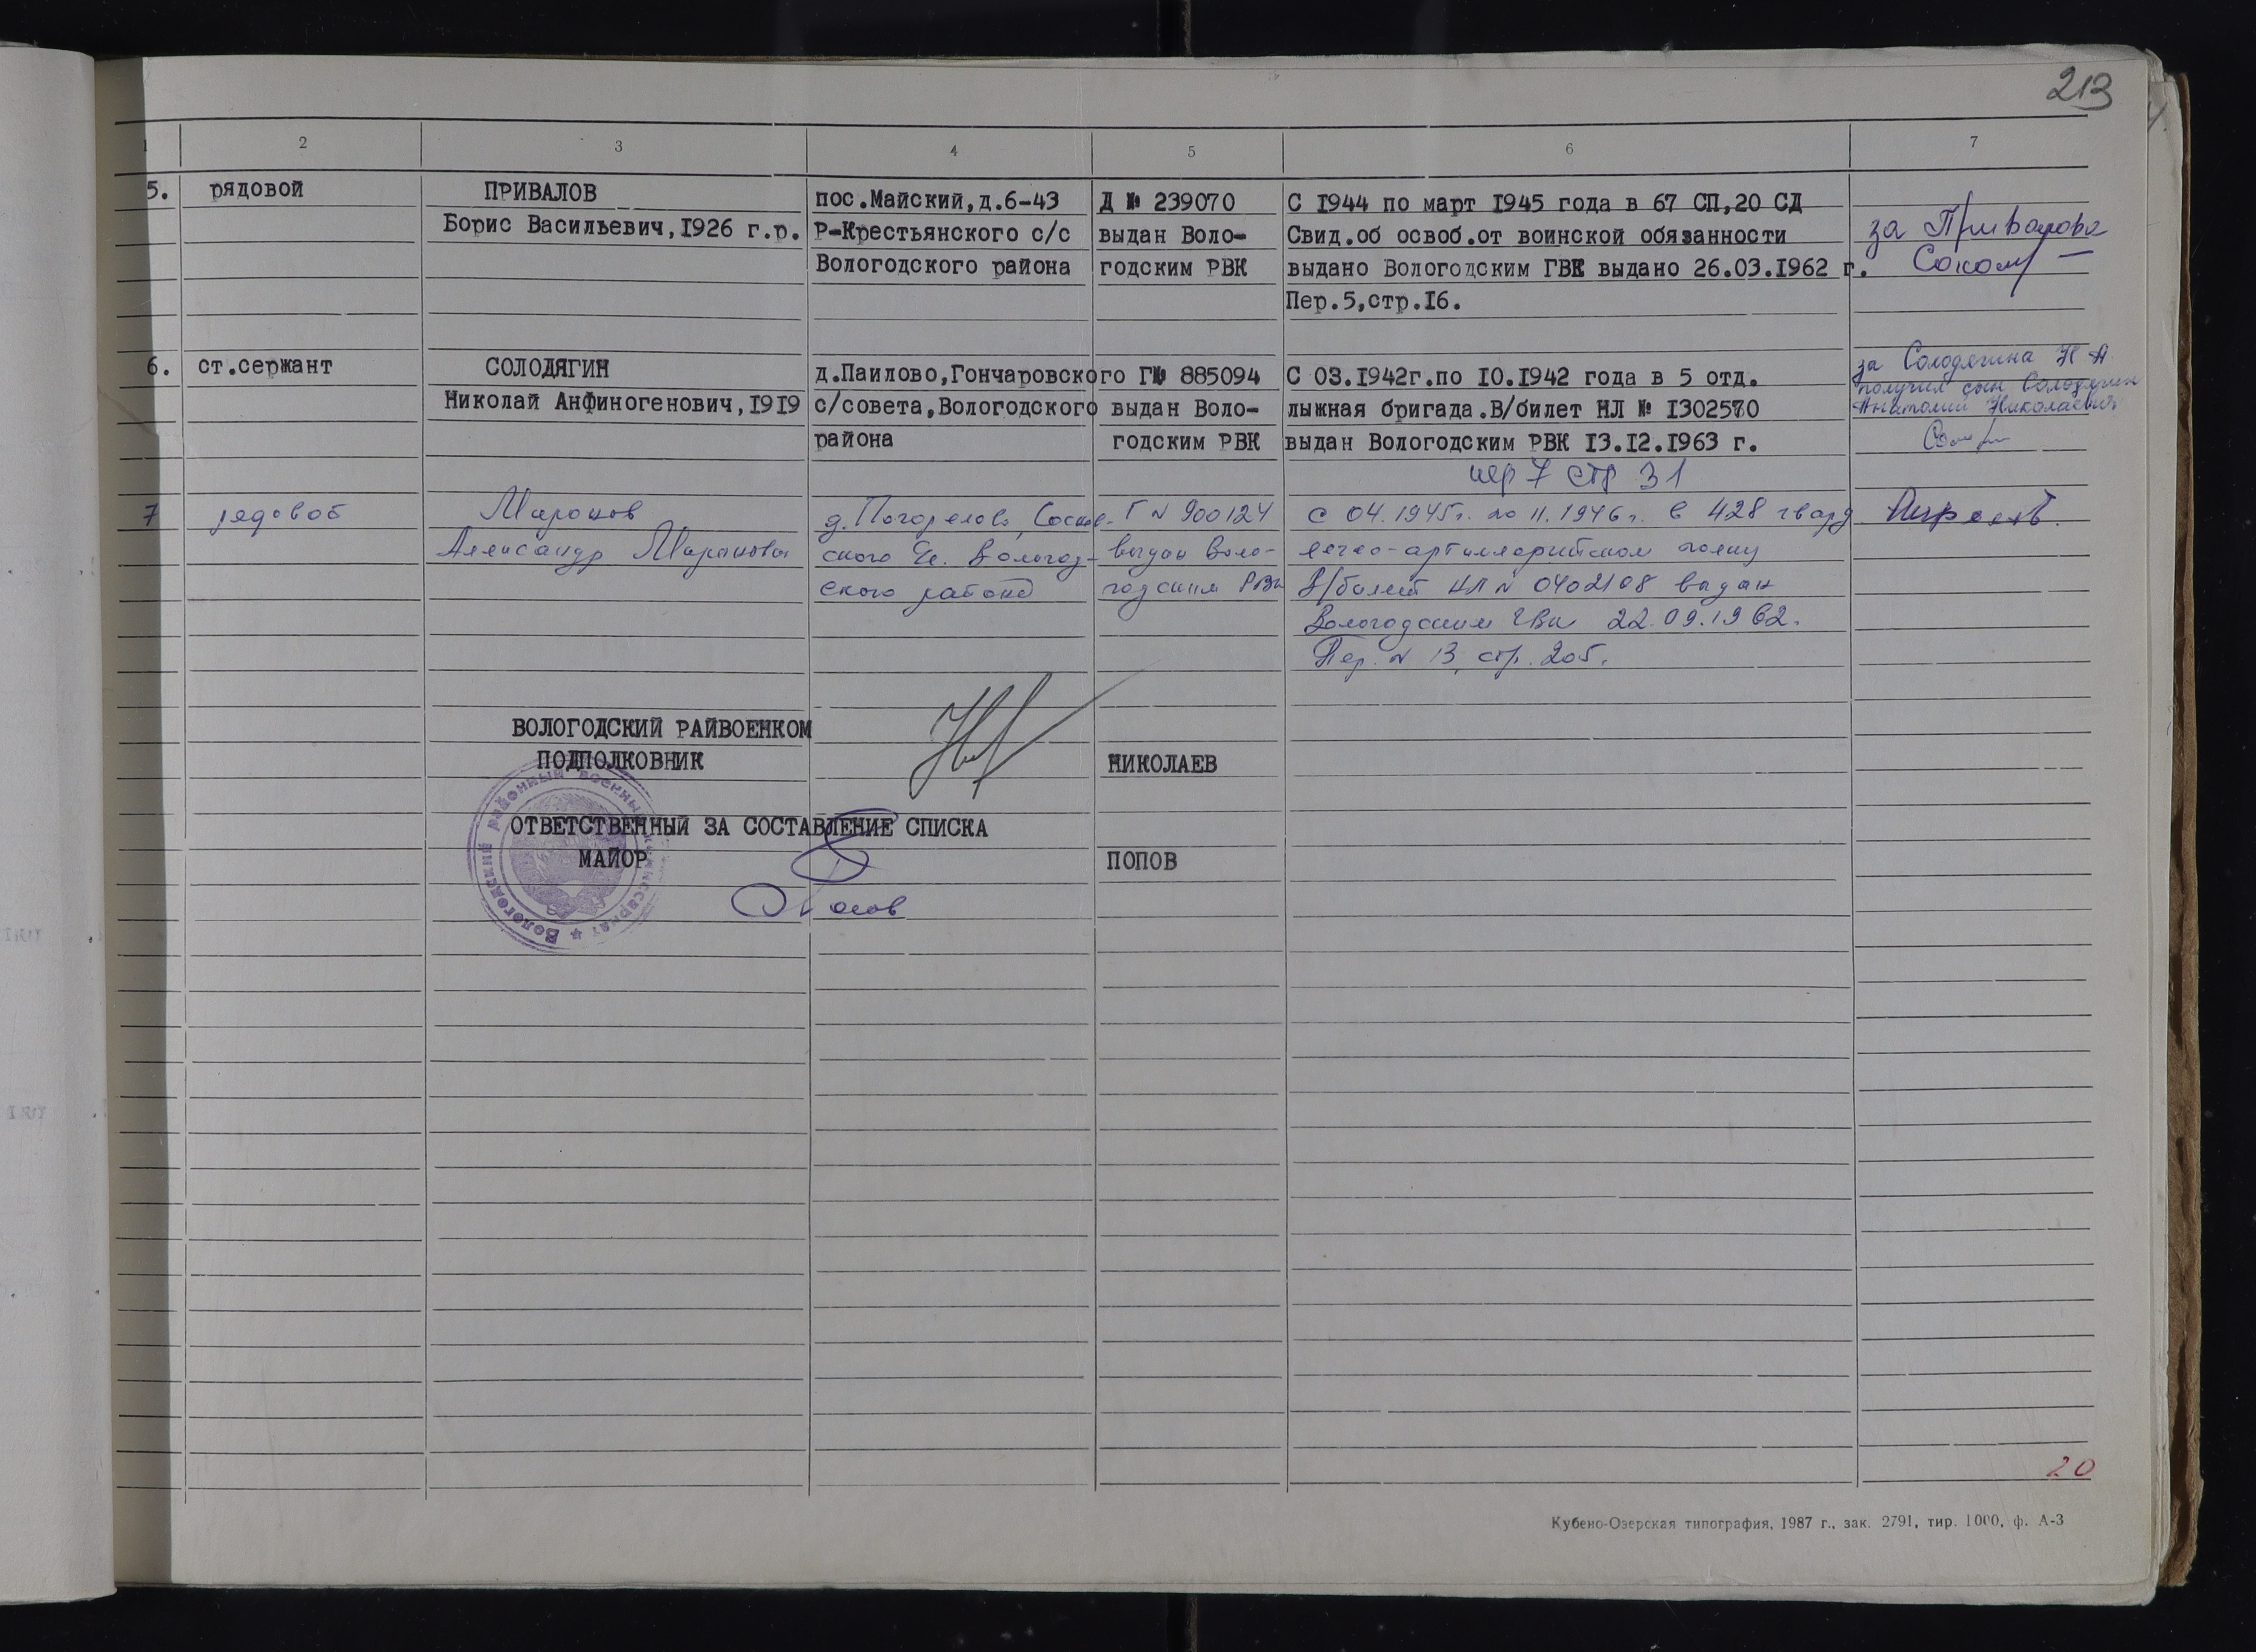 213
1 2 3 4 5 6 7
5. рядовой ПРИВАЛОВ
Борис Васильевич,1926 г.р.
пос.Майский,д.6-43
Р-Крестьянского с/с
Вологодского района
Д № 239070
выдан Воло-
годским РВК
С 1944 по март 1945 года в 67 СП,20 СД
Свид.об освоб.от воинской обязанности
выдано Вологодским ГВК выдано 26.03.1962 г.
Пер.5,стр.16.
за Привалова
6. ст.сержант СОЛОДЯГИН
Николай Анфиногенович,1919
д.Паилово,Гончаровского
с/совета,Вологодского
района
Г№ 885094
выдан Воло-
годским РВК
С 03.1942г.по 10.1942 года в 5 отд.
лыжная бригада.В/билет НЛ № 1302570
выдан Вологодским РВК 13.12.1963 г.
пер 7 стр 31
за Солодягина Н А
получил сын Солодягин
Анатолий Николаевич
7 рядовой Миронов
Александр Миронович
д. Погорелово,
ского с/с. Вологод-
ского района
Г № 900124
выдан Воло-
годским РВК
с 04.1945г. по 11.1946г. в 428 гвард
легко-артиллерийском полку
В/билет НЛ № 0402108 выдан
Вологодским ГВК 22.09.1962.
Пер. № 13, стр. 205.
ВОЛОГОДСКИЙ РАЙВОЕНКОМ
ПОДПОЛКОВНИК НИКОЛАЕВ
ОТВЕТСТВЕННЫЙ ЗА СОСТАВЛЕНИЕ СПИСКА
МАЙОР ПОПОВ
Вологодский районный военный комиссариат
20
Кубено-Озерская типография, 1987 г., зак. 2791, тир. 1000, ф. А-3